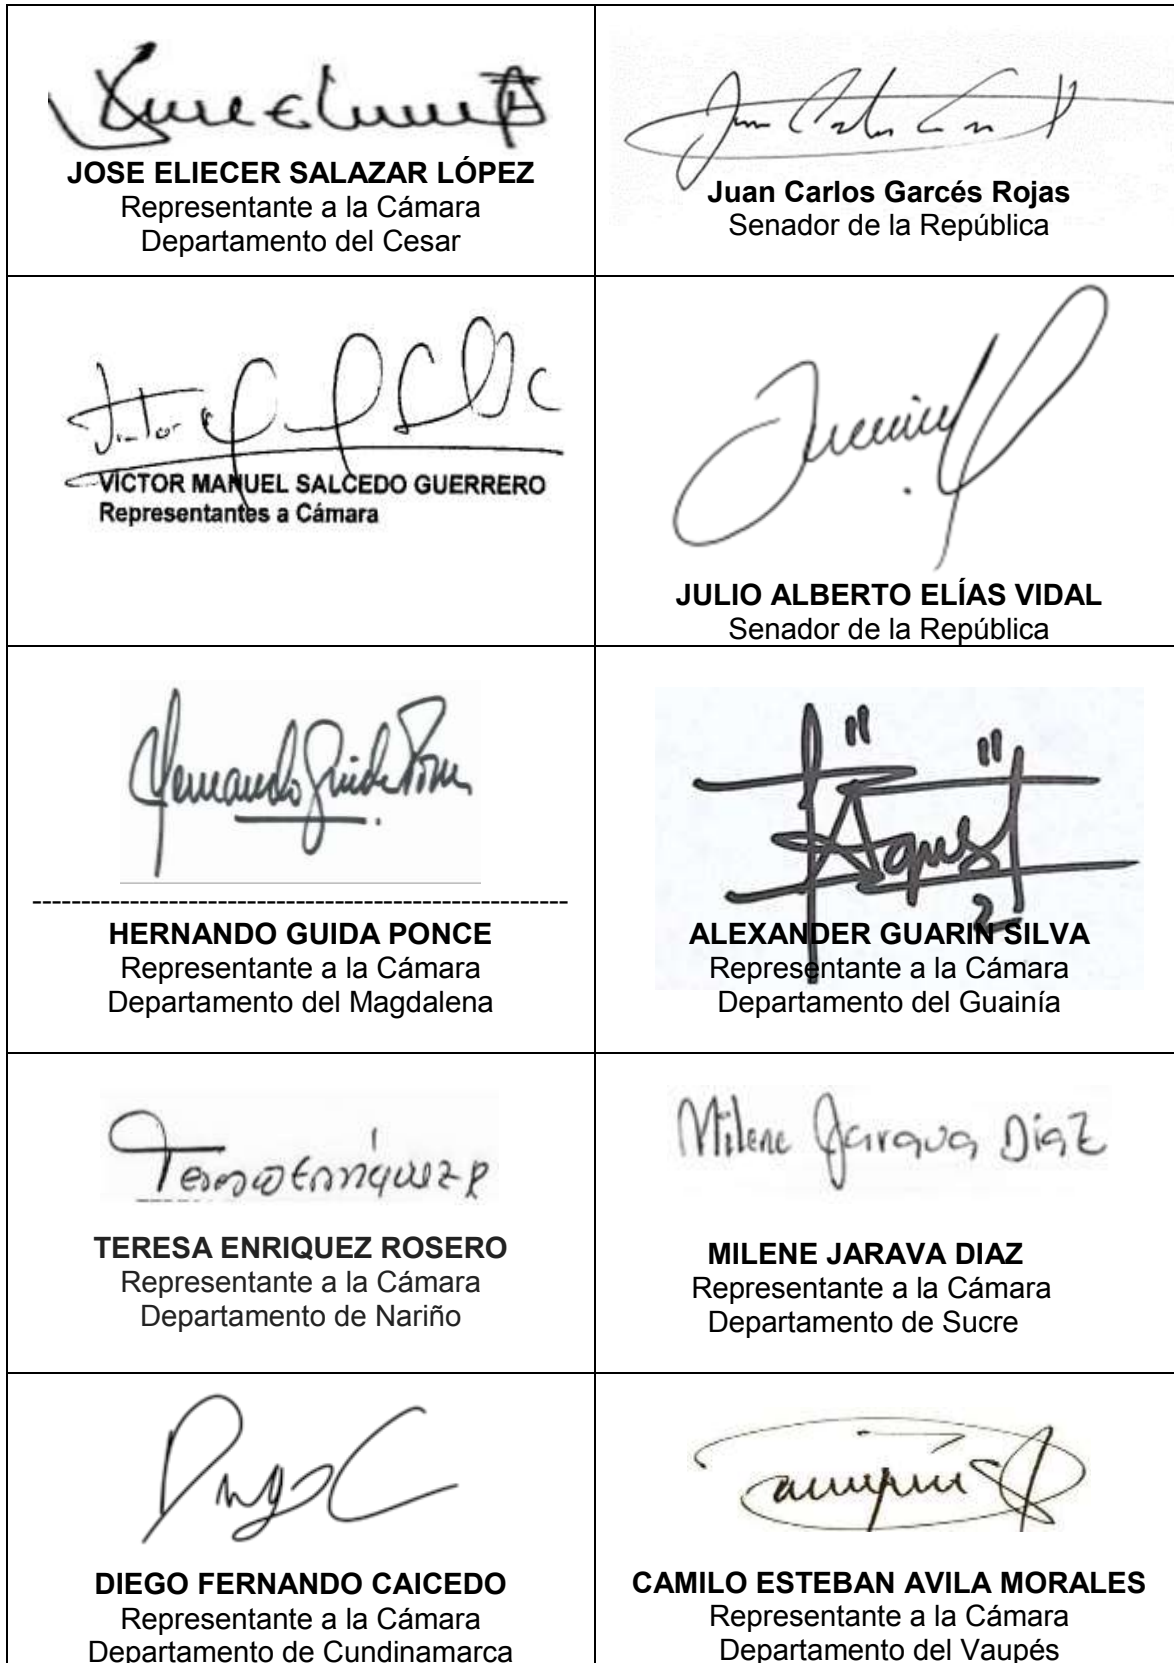 JOSE ELIECER SALAZAR LÓPEZ
Representante a la Cámara
Departamento del Cesar
Juan Carlos Garcés Rojas
Senador de la República
VICTOR MANUEL SALCEDO GUERRERO
Representantes a Cámara
JULIO ALBERTO ELÍAS VIDAL
Senador de la República
Hernando Guida Ponce
HERNANDO GUIDA PONCE
Representante a la Cámara
Departamento del Magdalena
ALEXANDER GUARIN SILVA
Representante a la Cámara
Departamento del Guainía
Teresa Enríquez R
TERESA ENRIQUEZ ROSERO
Representante a la Cámara
Departamento de Nariño
Milene Jarava Diaz
MILENE JARAVA DIAZ
Representante a la Cámara
Departamento de Sucre
DIEGO FERNANDO CAICEDO
Representante a la Cámara
Departamento de Cundinamarca
CAMILO ESTEBAN AVILA MORALES
Representante a la Cámara
Departamento del Vaupés